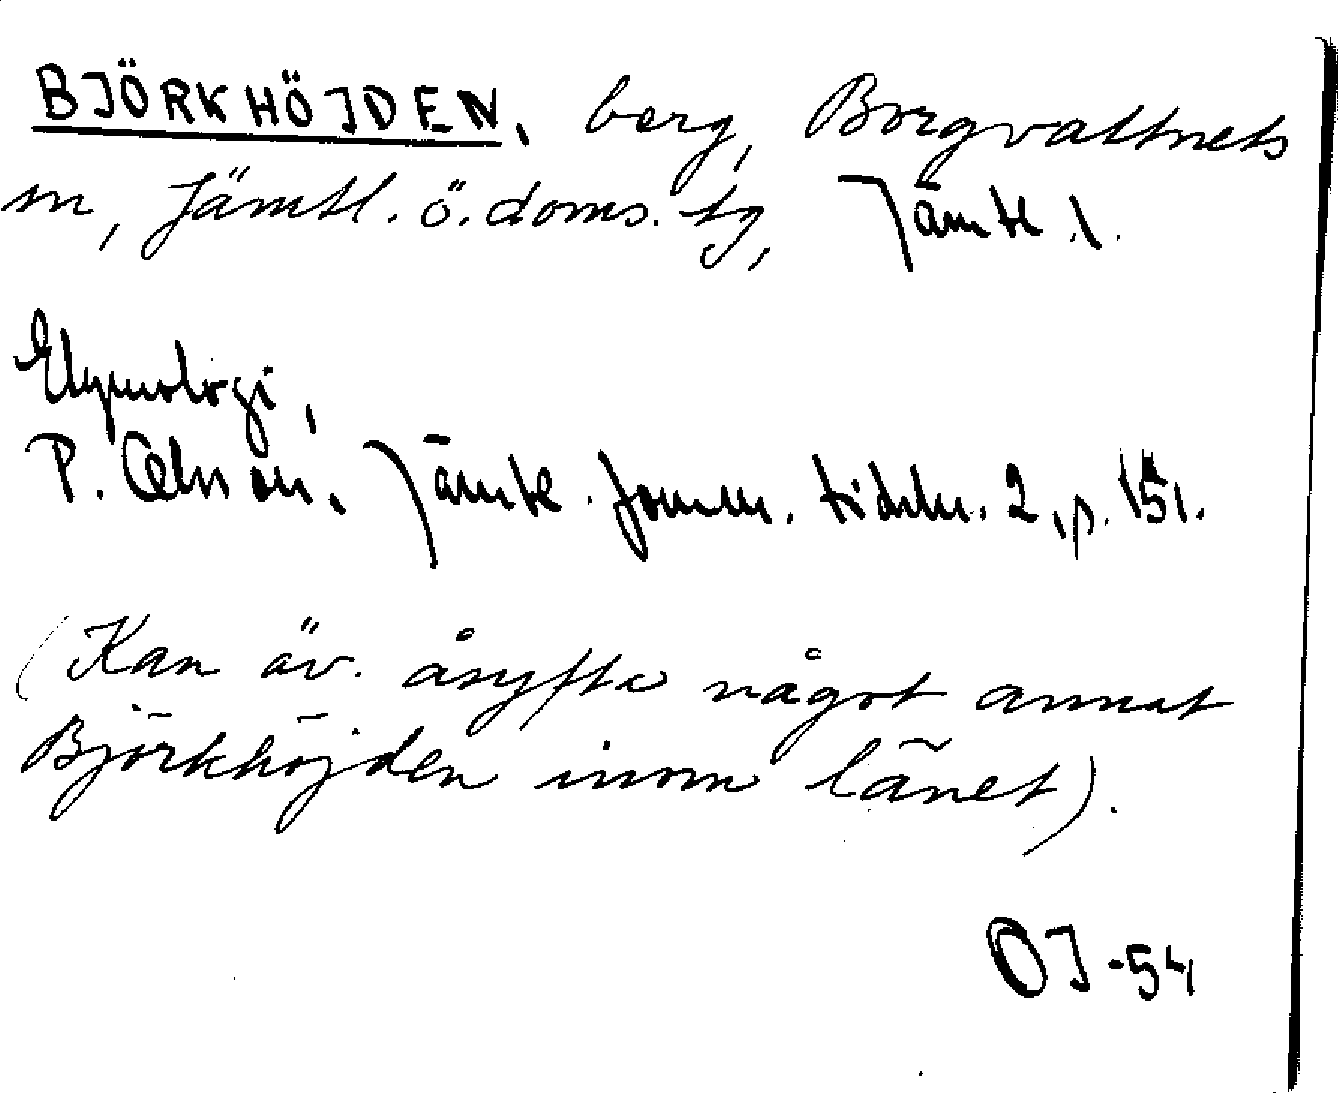 BJÖRKHÖJDEN, berg, Borgvattnets
sn, Jämtl. ö. doms. tg, Jämtl. l.
Etymologi,
P. Olsson, Jämtl. fornm. tidskr. 2, p. 151.
(Kan äv. åsyfta något annat
Björkhöjden inom länet).
OJ -54